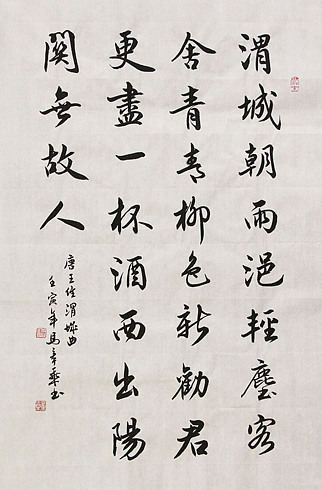 渭城朝雨浥輕塵客
舍青青柳色新勸君
更盡一杯酒西出陽
關無故人
唐王維渭城曲
壬寅年馬